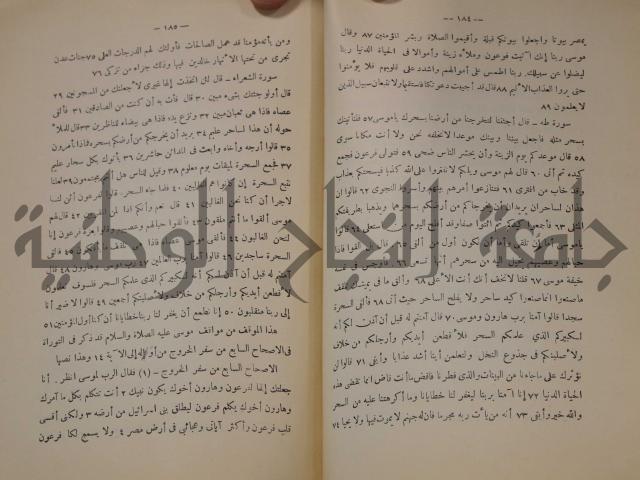 — ١٨٤ —
بمصر بيوتا واجعلوا بيوتكم قبلة وأقيموا الصلاة وبشر المؤمنين ٨٧ وقال
موسى ربنا إنك آتيت فرعون وملأه زينة وأموالا فى الحياة الدنيا ربنا
ليضلوا عن سبيلك ربنا اطمس على أموالهم واشدد على قلوبهم فلا يؤمنوا
حتى يروا العذاب الأليم ٨٨ قال قد أجيبت دعوتكما فاستقيما ولا تتبعان سبيل الذين
لا يعلمون ٨٩
سورة طه – قال أجئتنا لتخرجنا من أرضنا بسحرك ياموسى ٥٧ فلنأتينك
بسحر مثله فاجعل بيننا وبينك موعدا لا نخلفه نحن ولا أنت مكانا سوى
٥٨ قال موعدكم يوم الزينة وأن يحشر الناس ضحى ٥٩ فتولى فرعون فجمع
كيده ثم أتى ٦٠ قال لهم موسى ويلكم لا تفتروا على الله كذبا فيسحتكم بعذاب
وقد خاب من افترى ٦١ فتنازعوا أمرهم بينهم وأسروا النجوى ٦٢ قالوا إن
هذان لساحران يريدان أن يخرجاكم من أرضكم بسحرهما ويذهبا بطريقتكم
المثلى ٦٣ فأجمعوا كيدكم ثم ائتوا صفا وقد أفلح اليوم من استعلى ٦٤ قالوا
ياموسى إما أن تلقى وإما أن نكون أول من ألقى ٦٥ قال بل ألقوا فإذا
حبالهم وعصيهم يخيل إليه من سحرهم أنها تسعى ٦٦ فأوجس فى نفسه
خيفة موسى ٦٧ قلنا لا تخف إنك أنت الأعلى ٦٨ وألق ما فى يمينك تلقف
ما صنعوا إنما صنعوا كيد ساحر ولا يفلح الساحر حيث أتى ٦٩ فألقى السحرة
سجدا قالوا آمنا برب هارون وموسى ٧٠ قال آمنتم له قبل أن آذن لكم إنه
لكبيركم الذى علمكم السحر فلأقطعن أيديكم وأرجلكم من خلاف
ولأصلبنكم فى جذوع النخل ولتعلمن أينا أشد عذابا وأبقى ٧١ قالوا لن
نؤثرك على ما جاءنا من البينات والذى فطرنا فاقض ما أنت قاض إنما تقضى هذه
الحياة الدنيا ٧٢ إنا آمنا بربنا ليغفر لنا خطايانا وما أكرهتنا عليه من السحر
والله خير وأبقى ٧٣ إنه من يأت ربه مجرما فان له جهنم لا يموت فيها ولا يحيا ٧٤
— ١٨٥ —
ومن يأته مؤمنا قد عمل الصالحات فأولئك لهم الدرجات العلى ٧٥ جنات عدن
تجرى من تحتها الأنهار خالدين فيها وذلك جزاء من تزكى ٧٦
سورة الشعراء – قال لئن اتخذت إلها غيرى لأجعلنك من المسجونين ٢٩
قال أولو جئتك بشىء مبين ٣٠ قال فأت به إن كنت من الصادقين ٣١ فألقى
عصاه فاذا هى ثعبان مبين ٣٢ ونزع يده فاذا هى بيضاء للناظرين ٣٣ قال للملأ
حوله إن هذا لساحر عليم ٣٤ يريد أن يخرجكم من أرضكم بسحره فماذا تأمرون
٣٥ قالوا أرجه وأخاه وابعث فى المدائن حاشرين ٣٦ يأتوك بكل سحار عليم
٣٧ فجمع السحرة لميقات يوم معلوم ٣٨ وقيل للناس هل أنتم مجتمعون ٣٩ لعلنا
نتبع السحرة إن كانوا هم الغالبين ٤٠ فلما جاء السحرة قالوا لفرعون أئن لنا
لأجرا إن كنا نحن الغالبين ٤١ قال نعم وإنكم اذا لمن المقربين ٤٢ قال لهم
موسى ألقوا ما أنتم ملقون ٤٣ فألقوا حبالهم وعصيهم وقالوا بعزة فرعون إنا
لنحن الغالبون ٤٤ فألقى موسى عصاه فاذا هى تلقف ما يأفكون ٤٥ فألقى
السحرة ساجدين ٤٦ قالوا آمنا برب العالمين ٤٧ رب موسى وهارون ٤٨ قال
آمنتم له قبل أن آذن لكم إنه لكبيركم الذى علمكم السحر فلسوف تعلمون
لأقطعن أيديكم وأرجلكم من خلاف ولأصلبنكم أجمعين ٤٩ قالوا لا ضير إنا
إلى ربنا منقلبون ٥٠ إنا نطمع أن يغفر لنا ربنا خطايانا أن كنا أول المؤمنين ٥١
هذا الموقف من مواقف موسى عليه الصلاة والسلام قد ذكر فى التوراة
فى الاصحاح السابع من سفر الخروج من أوله إلى الآية ١٤ وهذا نصها
الاصحاح السابع من سفر الخروج – (١) فقال الرب لموسى انظر. أنا
جعلتك إلها لفرعون وهارون أخوك يكون نبيك ٢ أنت تتكلم بكل ما آمرك
وهارون أخوك يكلم فرعون ليطلق بنى اسرائيل من أرضه ٣ ولكنى أقسى
قلب فرعون وأكثر آياتى وعجائبى فى أرض مصر ٤ ولا يسمع لكما فرعون
جامعة النجاح الوطنية